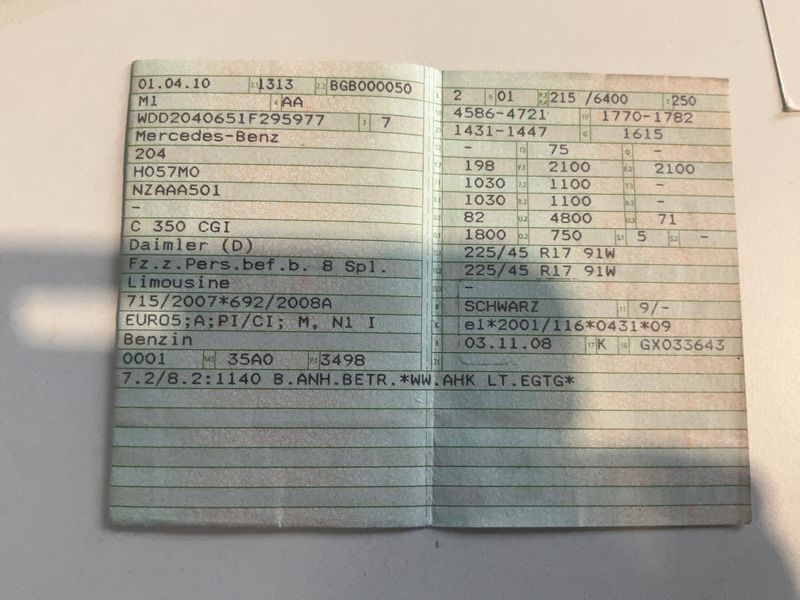 01.04.10 1313 BGB000050
M1 AA
WDD2040651F295977 7
Mercedes-Benz
204
H057M0
NZAAA501
-
C 350 CGI
Daimler (D)
Fz.z.Pers.bef.b. 8 Spl.
Limousine
715/2007*692/2008A
EURO5;A;PI/CI; M, N1 I
Benzin
0001 35A0 3498
7.2/8.2:1140 B.ANH.BETR.*WW.AHK LT.EGTG*
2 01 215 /6400 250
4586-4721 1770-1782
1431-1447 1615
- 75 -
198 2100 2100
1030 1100 -
1030 1100 -
82 4800 71
1800 750 5 -
225/45 R17 91W
225/45 R17 91W
-
SCHWARZ 9/-
e1*2001/116*0431*09
03.11.08 K GX033643